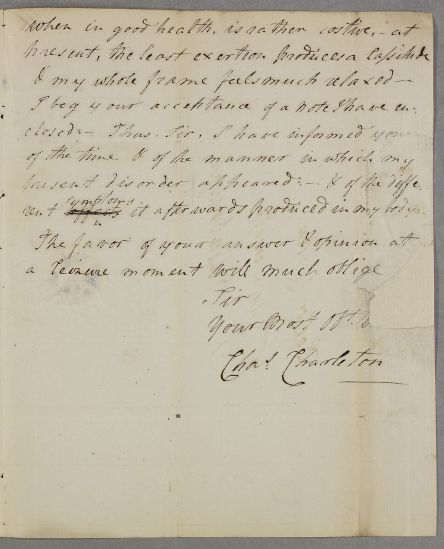 when in good health, is rather costive, - at
present, the least exertion produces a lassitude
& my whole frame feels much relaxed -
I beg your acceptance of a note I have en-
closed. - Thus, Sir, I have informed you
of the time & of the manner in which my
present disorder appeared: - & of the diffe-
rent symptoms
effects it afterwards produced in my body.
The favor of your answer & opinion at
a leizure moment will much oblige
Sir
Your Most Obt.
Chas. Charleton